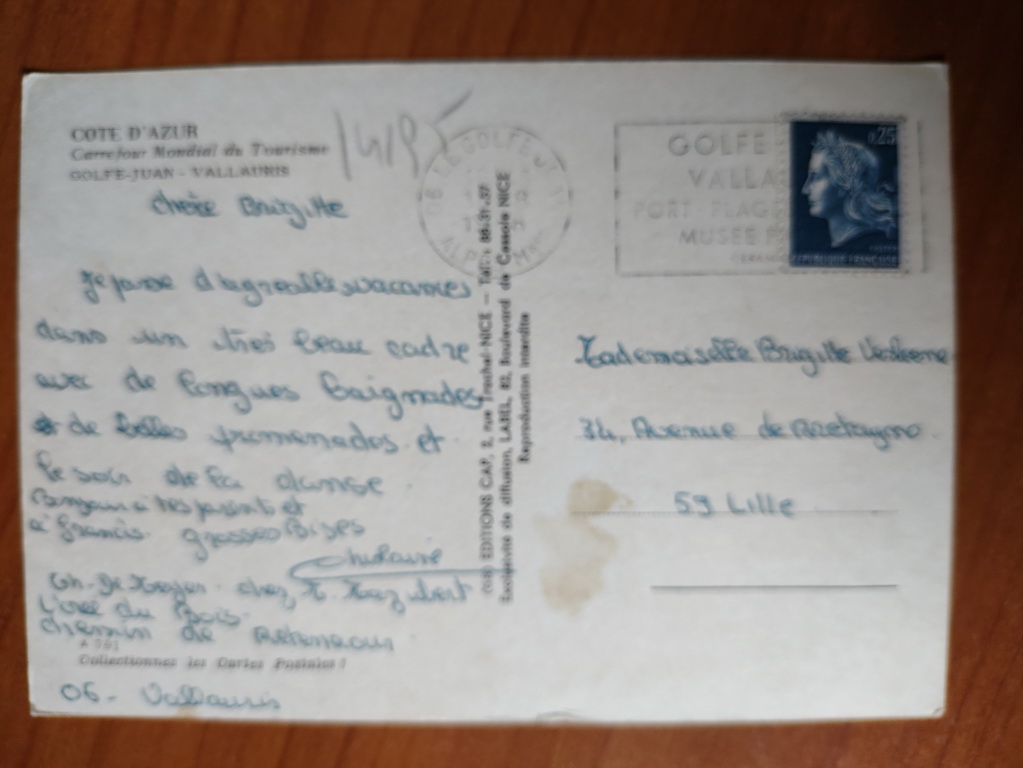 COTE D'AZUR
Carrefour Mondial du Tourisme
GOLFE-JUAN - VALLAURIS
1419
Chère Brigitte
Je passe d'agreables vacances
dans un très beau cadre
avec de longues baignades
de belles promenades et
le soir de la danse
Bonjour à tes parents et
à Francis. grosses Bises
Ghislaine
Gh. De chez
du Bois
chemin de
Collectionnez les Cartes Postales !
06 - Vallauris
(06) EDITIONS CAP, 2, rue Trachel-NICE - Tél. : 88-37-37
Exclusivité de diffusion, LABEL, 82, Boulevard de Cessole NICE
Reproduction interdite
06 LE GOLFE JUAN
ALPES MMES
GOLFE
VALLA
PORT PLAGE
MUSEE P
CERAM
0,25
REPUBLIQUE FRANÇAISE
Mademoiselle Brigitte
34, Avenue de Bretagne
59 Lille